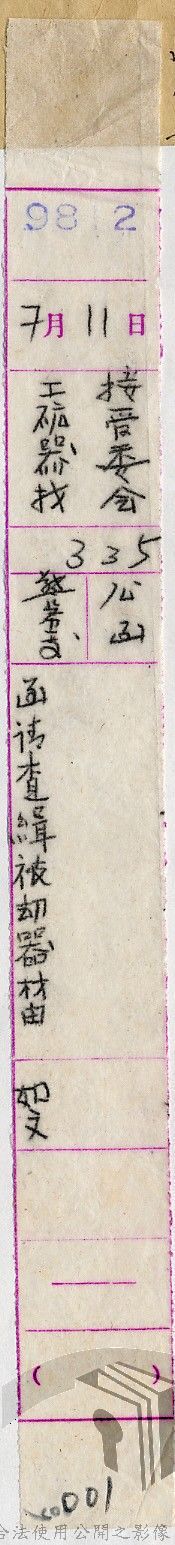 9812
7月11日
接管委会
工砿器材
335
公函
警务支
函请查缉被刧器材由
如文
(　　)
001
合法使用公開之影像